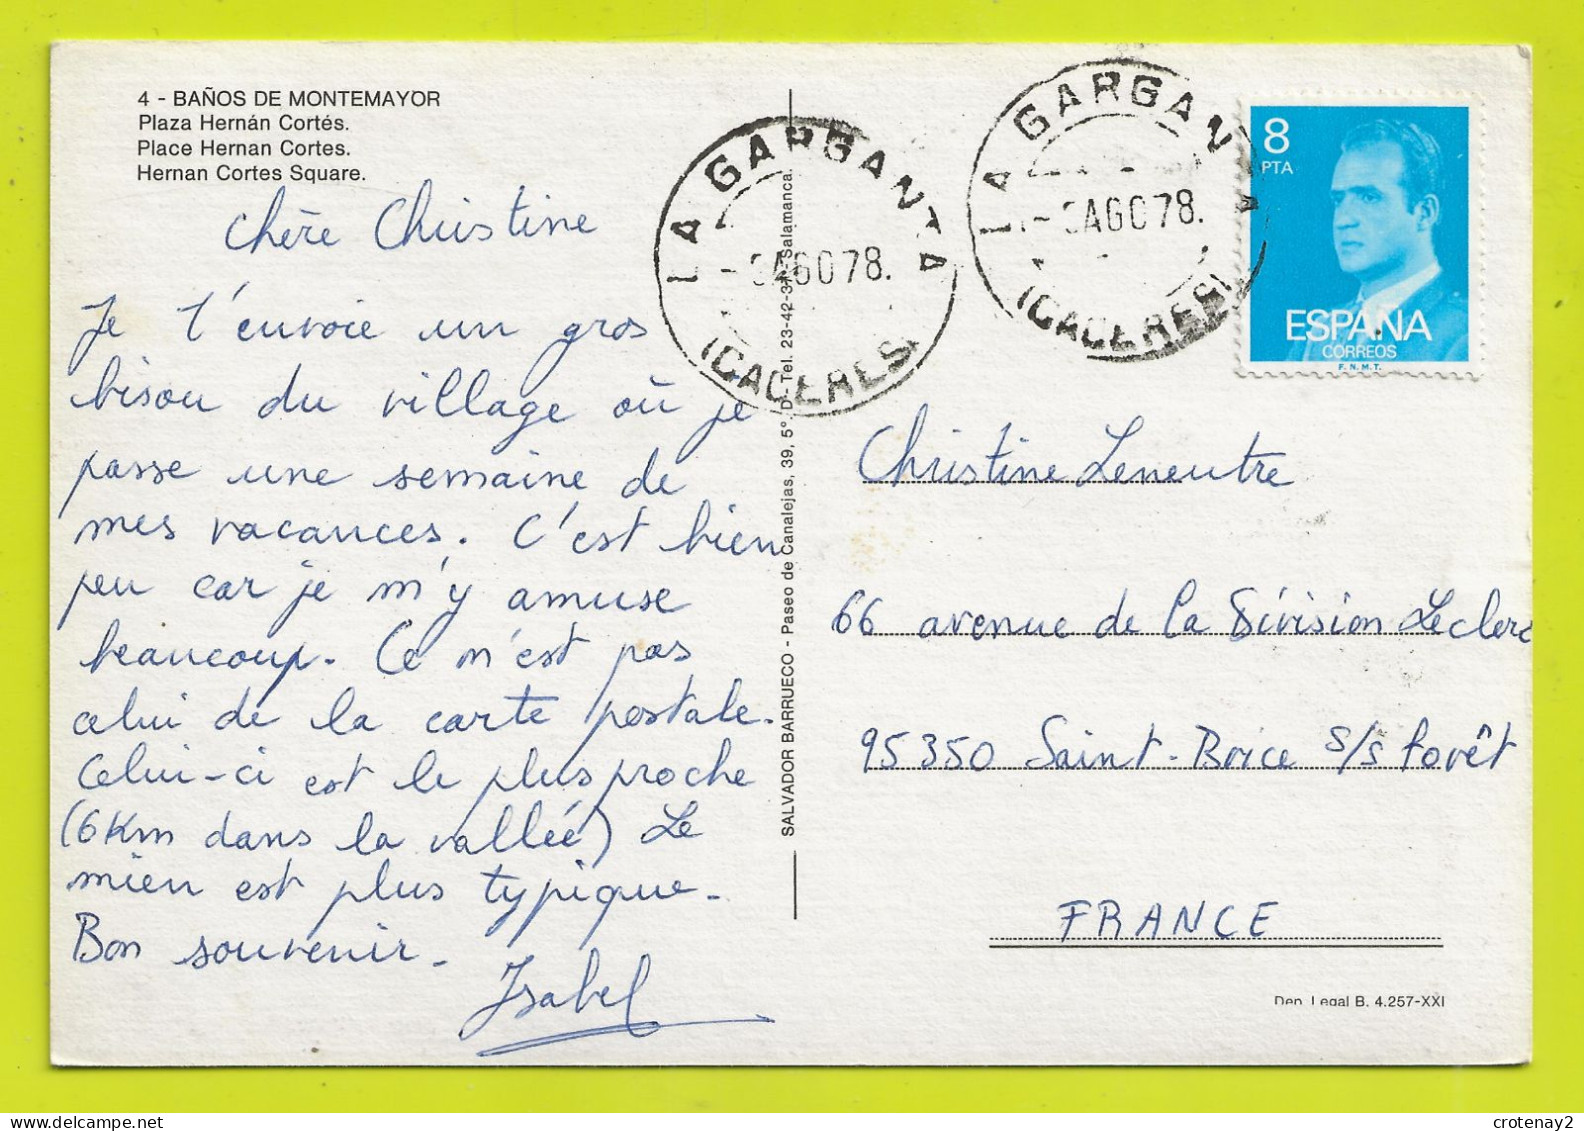 4 - BAÑOS DE MONTEMAYOR
Plaza Hernán Cortés.
Place Hernan Cortes.
Hernan Cortes Square.
chère Christine
Je t'envoie un gros
bisou du village où je
passe une semaine de
mes vacances. C'est bien
peu car je m'y amuse
beaucoup. Ce n'est pas
celui de la carte postale.
Celui-ci est le plus proche
(6 Km dans la vallée) Le
mien est plus typique.
Bon souvenir.
Isabel
SALVADOR BARRUECO - Paseo de Canalejas, 39, 5° D - Tel. 23-42-37 - Salamanca.
LA GARGANTA
AGO 78.
(CACERES)
LA GARGANTA
AGO 78.
(CACERES)
8
PTA
ESPAÑA
CORREOS
F.N.M.T.
Christine Leneutre
66 avenue de la Division Leclerc
95350 Saint-Brice s/s forêt
FRANCE
Dep. Legal B. 4.257-XXI
crotenay2